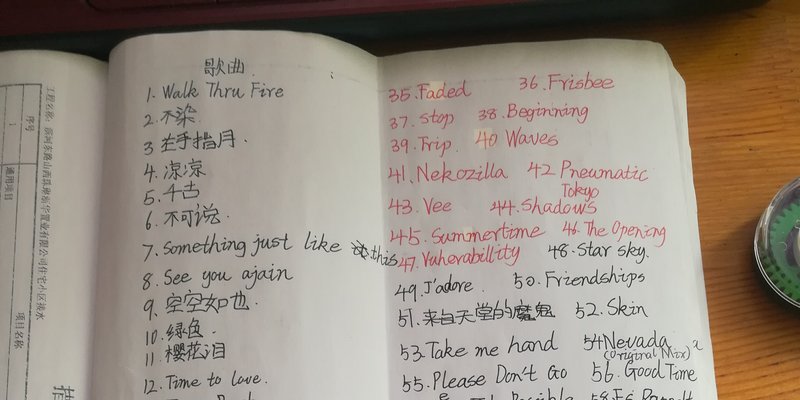 歌曲
1. Walk Thru Fire
2. 不染
3 左手指月.
4. 凉凉
5. 千古
6. 不可说.
7. Something just like this
8. See you again
9. 空空如也.
10. 绿色.
11 樱花泪
12. Time to love.
35. Faded 36. Frisbee
37. stop 38. Beginning
39. Trip. 40 Waves
41. Nekozilla 42 Pneumatic
Tokyo
43. Vee 44. Shadows
45. Summertime 46. The Opening
47. Vuherability 48. Star sky.
49. J'adore. 50. Friendships
51. 来自天堂的魔鬼 52. Skin
53. Take me hand 54 Nevada
(Original Mix)
55. Please Don't Go 56. Good Time
工程名称:
序号
1
通用项目
项目名称